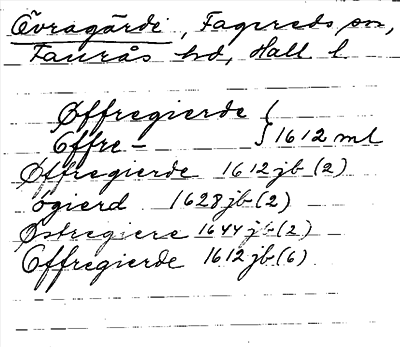 Övragärde, Fagereds sn,
Faurås hd, Hall l
Øffregierde {
Offre – } 1612 ml
Øffregierde 1612 jb (2)
ögierd 1628 jb (2)
Østregiere 1644 jb (2)
Offregierde 1612 jb (6)